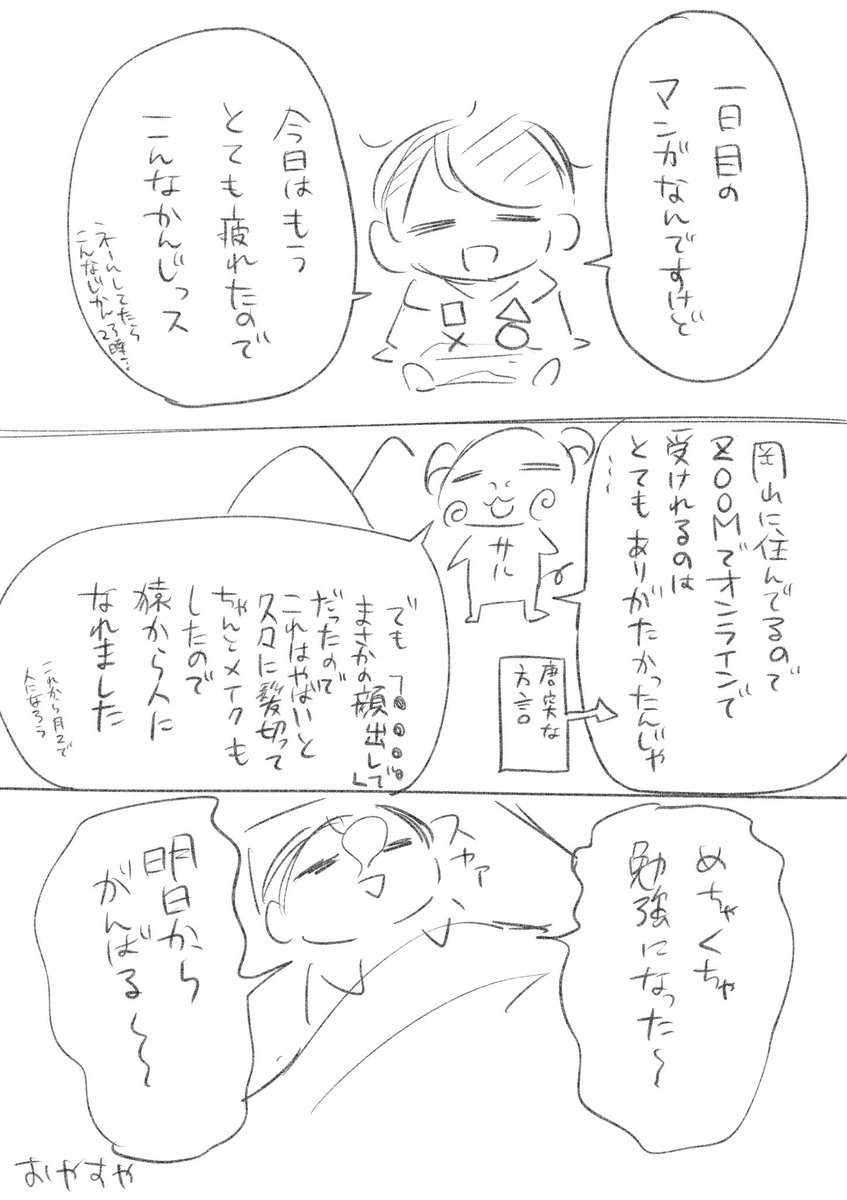 一日目の
マンガなんですけど
今日はもう
とても疲れたので
こんなかんじっス
ネームしてたら
こんなじかん
23時…
岡山に住んでるので
ZOOMでオンラインで
受けれるのは
とてもありがたかったんじゃ
…
唐突な
方言
サル
でも
まさかの顔出しで
だったので
これはやばいと
久々に髪切って
ちゃんとメイクも
したので
猿から人に
なれました
これから月2で
人になろう
めちゃくちゃ
勉強になった～
スヤァ
明日から
がんばる～～
おやすや